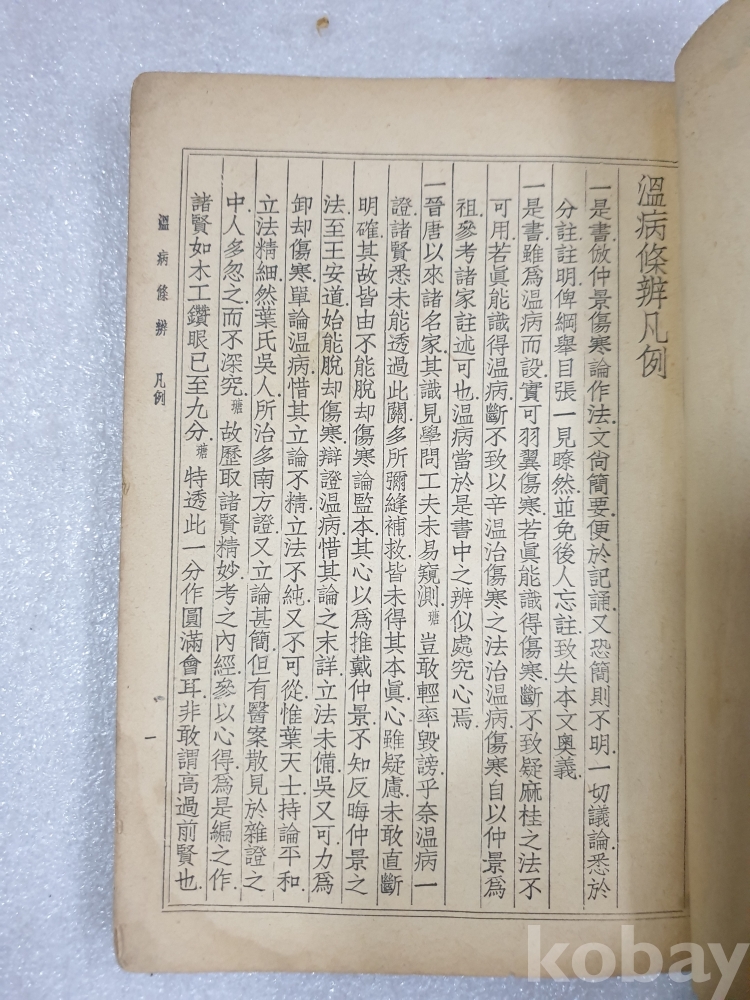 溫病條辨凡例
一是書倣仲景傷寒論作法文尙簡要便於記誦又恐簡則不明一切議論悉於
分註註明俾綱舉目張一見瞭然並免後人忘註致失本文奧義
一是書雖爲溫病而設實可羽翼傷寒若眞能識得傷寒斷不致疑麻桂之法不
可用若眞能識得溫病斷不致以辛溫治傷寒之法治溫病傷寒自以仲景爲
祖參考諸家註述可也溫病當於是書中之辨似處究心焉
一晉唐以來諸名家其識見學問工夫未易窺測瑭豈敢輕率毀謗乎奈溫病一
證諸賢悉未能透過此關多所彌縫補救皆未得其本眞心雖疑慮未敢直斷
明確其故皆由不能脫却傷寒論監本其心以爲推戴仲景不知反晦仲景之
法至王安道始能脫却傷寒辯證溫病惜其論之未詳立法未備吳又可力爲
卸却傷寒單論溫病惜其立論不精立法不純又不可從惟葉天士持論平和
立法精細然葉氏吳人所治多南方證又立論甚簡但有醫案散見於雜證之
中人多忽之而不深究瑭故歷取諸賢精妙考之內經參以心得爲是編之作
諸賢如木工鑽眼已至九分瑭特透此一分作圓滿會耳非敢謂高過前賢也
溫病條辨 凡例
一
kobay